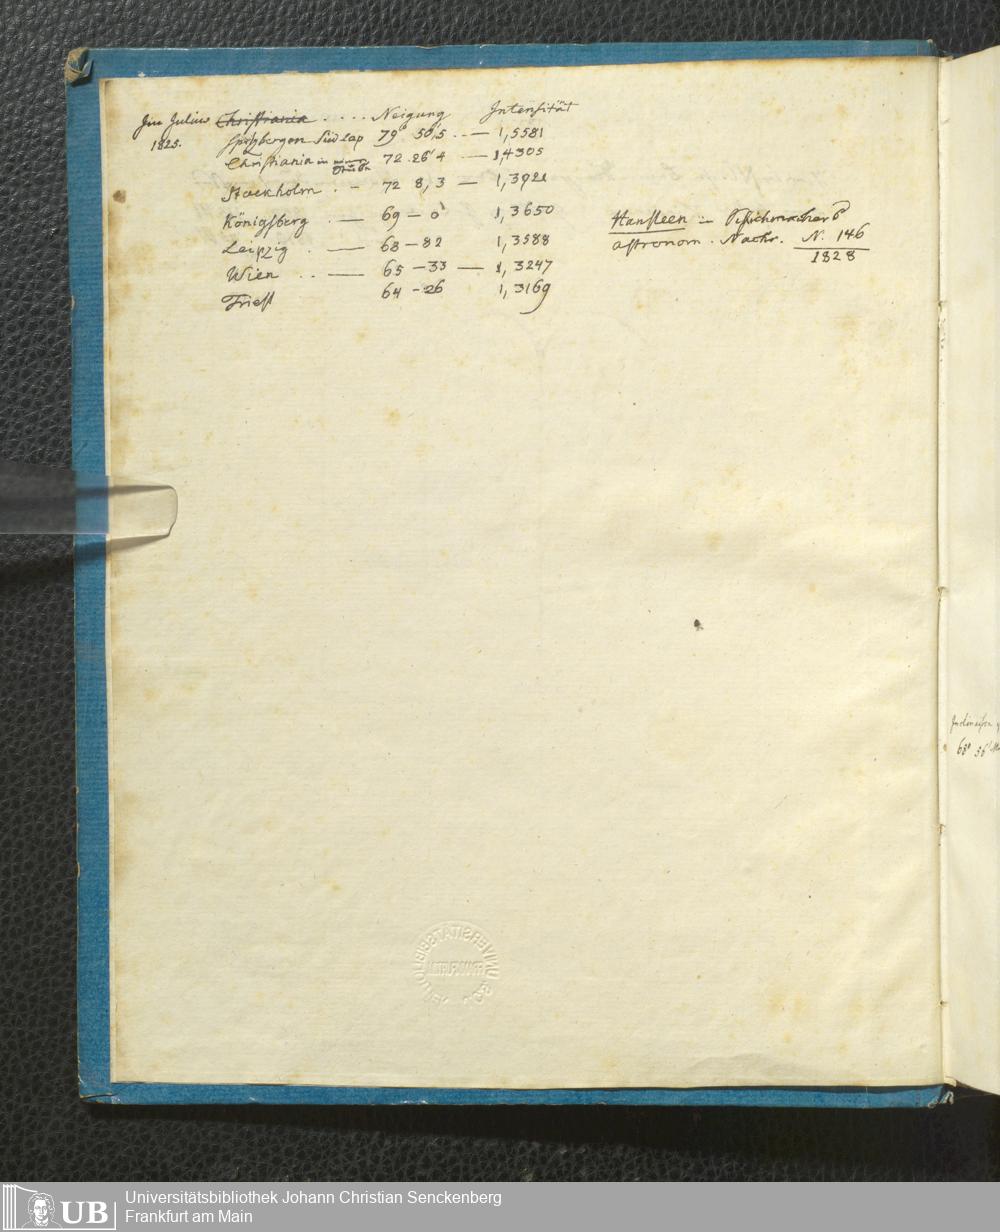 Im Julius Christiania . . . . Neigung Intensität
1825. Spitzbergen Südcap 79° 50,5 . . — 1,5581
Christiania in 72. 26' 4 — 1,4305
Stockholm . – 72 8, 3 — 1,3921
Königsberg . — 69 – 0' 1,3650
Leipzig . — 68 – 82 1,3588
Wien . . — 65 – 33 — 1,3247
Triest 64 – 26 1,3169
Hansteen in
astronom. Nachr. N. 146
1828
68° 56'
UNIVERSITÄTSBIBLIOTHEK
FRANKFURT
UB
Universitätsbibliothek Johann Christian Senckenberg
Frankfurt am Main